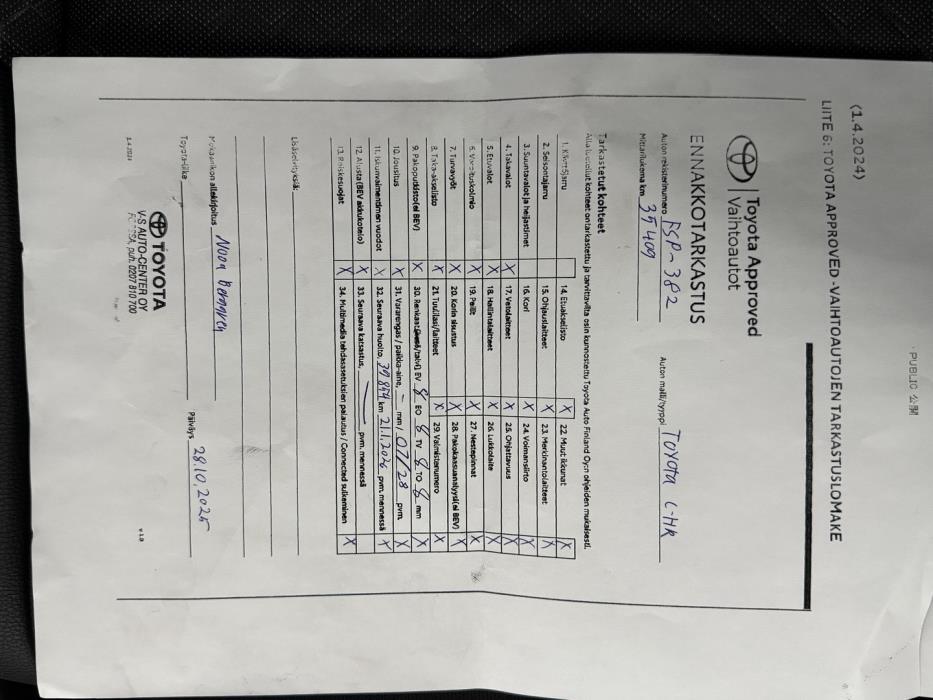 PUBLIC 公開
(1.4.2024)
LIITE 6: TOYOTA APPROVED -VAIHTOAUTOJEN TARKASTUSLOMAKE
Toyota Approved
Vaihtoautot
ENNAKKOTARKASTUS
Auton rekisterinumero FSP-382 Auton malli/tyyppi TOYOTA C-HR
Mittarilukema km 37409
Tarkastetut kohteet
Alla luetellut kohteet on tarkastettu ja tarvittavilta osin kunnostettu Toyota Auto Finland Oy:n ohjeiden mukaisesti.
1. Käsijarru 14. Etuakselisto X 22 Muut ikkunat X
2. Seisontajarru 15. Ohjauslaitteet X 23. Merkinantolaitteet X
3. Suuntavalot ja heijastimet 16. Kori X 24. Voimansiirto X
4. Takavalot X 17. Vetolaitteet X 25. Ohjattavuus X
5. Etuvalot X 18. Hallintalaitteet X 26. Lukkolaite X
6. Varoituskolmio X 19. Peilit X 27. Nestepinnat X
7. Turvavyöt X 20. Korin sisustus X 28. Pakokaasuanalyysi(ei BEV) X
8. Taka-akselisto X 21. Tuulilasi/laitteet X 29. Valmistenumero X
9. Pakoputkisto(ei BEV) X 30. Renkaat:(kesä/talvi) EV 8 EO 8 TV 8 TO 8 mm X
10. Jousitus X 31. Vararengas / paikka-aine, - mm / 07/28 pvm. X
11. Iskunvaimentimen vuodot X 32. Seuraava huolto, 39899 km 21.1.2026 pvm. mennessä X
12. Alusta(BEV akkukotelo) X 33. Seuraava katsastus, pvm. mennessä
13. Roiskesuojat X 34. Multimedia tehdasasetuksien palautus / Connected sulkeminen X
Lisäselvityksiä:
Mekaanikon allekirjoitus Noora Päiväys 28.10.2025
Toyota-liike
TOYOTA
V-S AUTO-CENTER OY
puh. 0207 810 700
1.4.2024 v 1.9